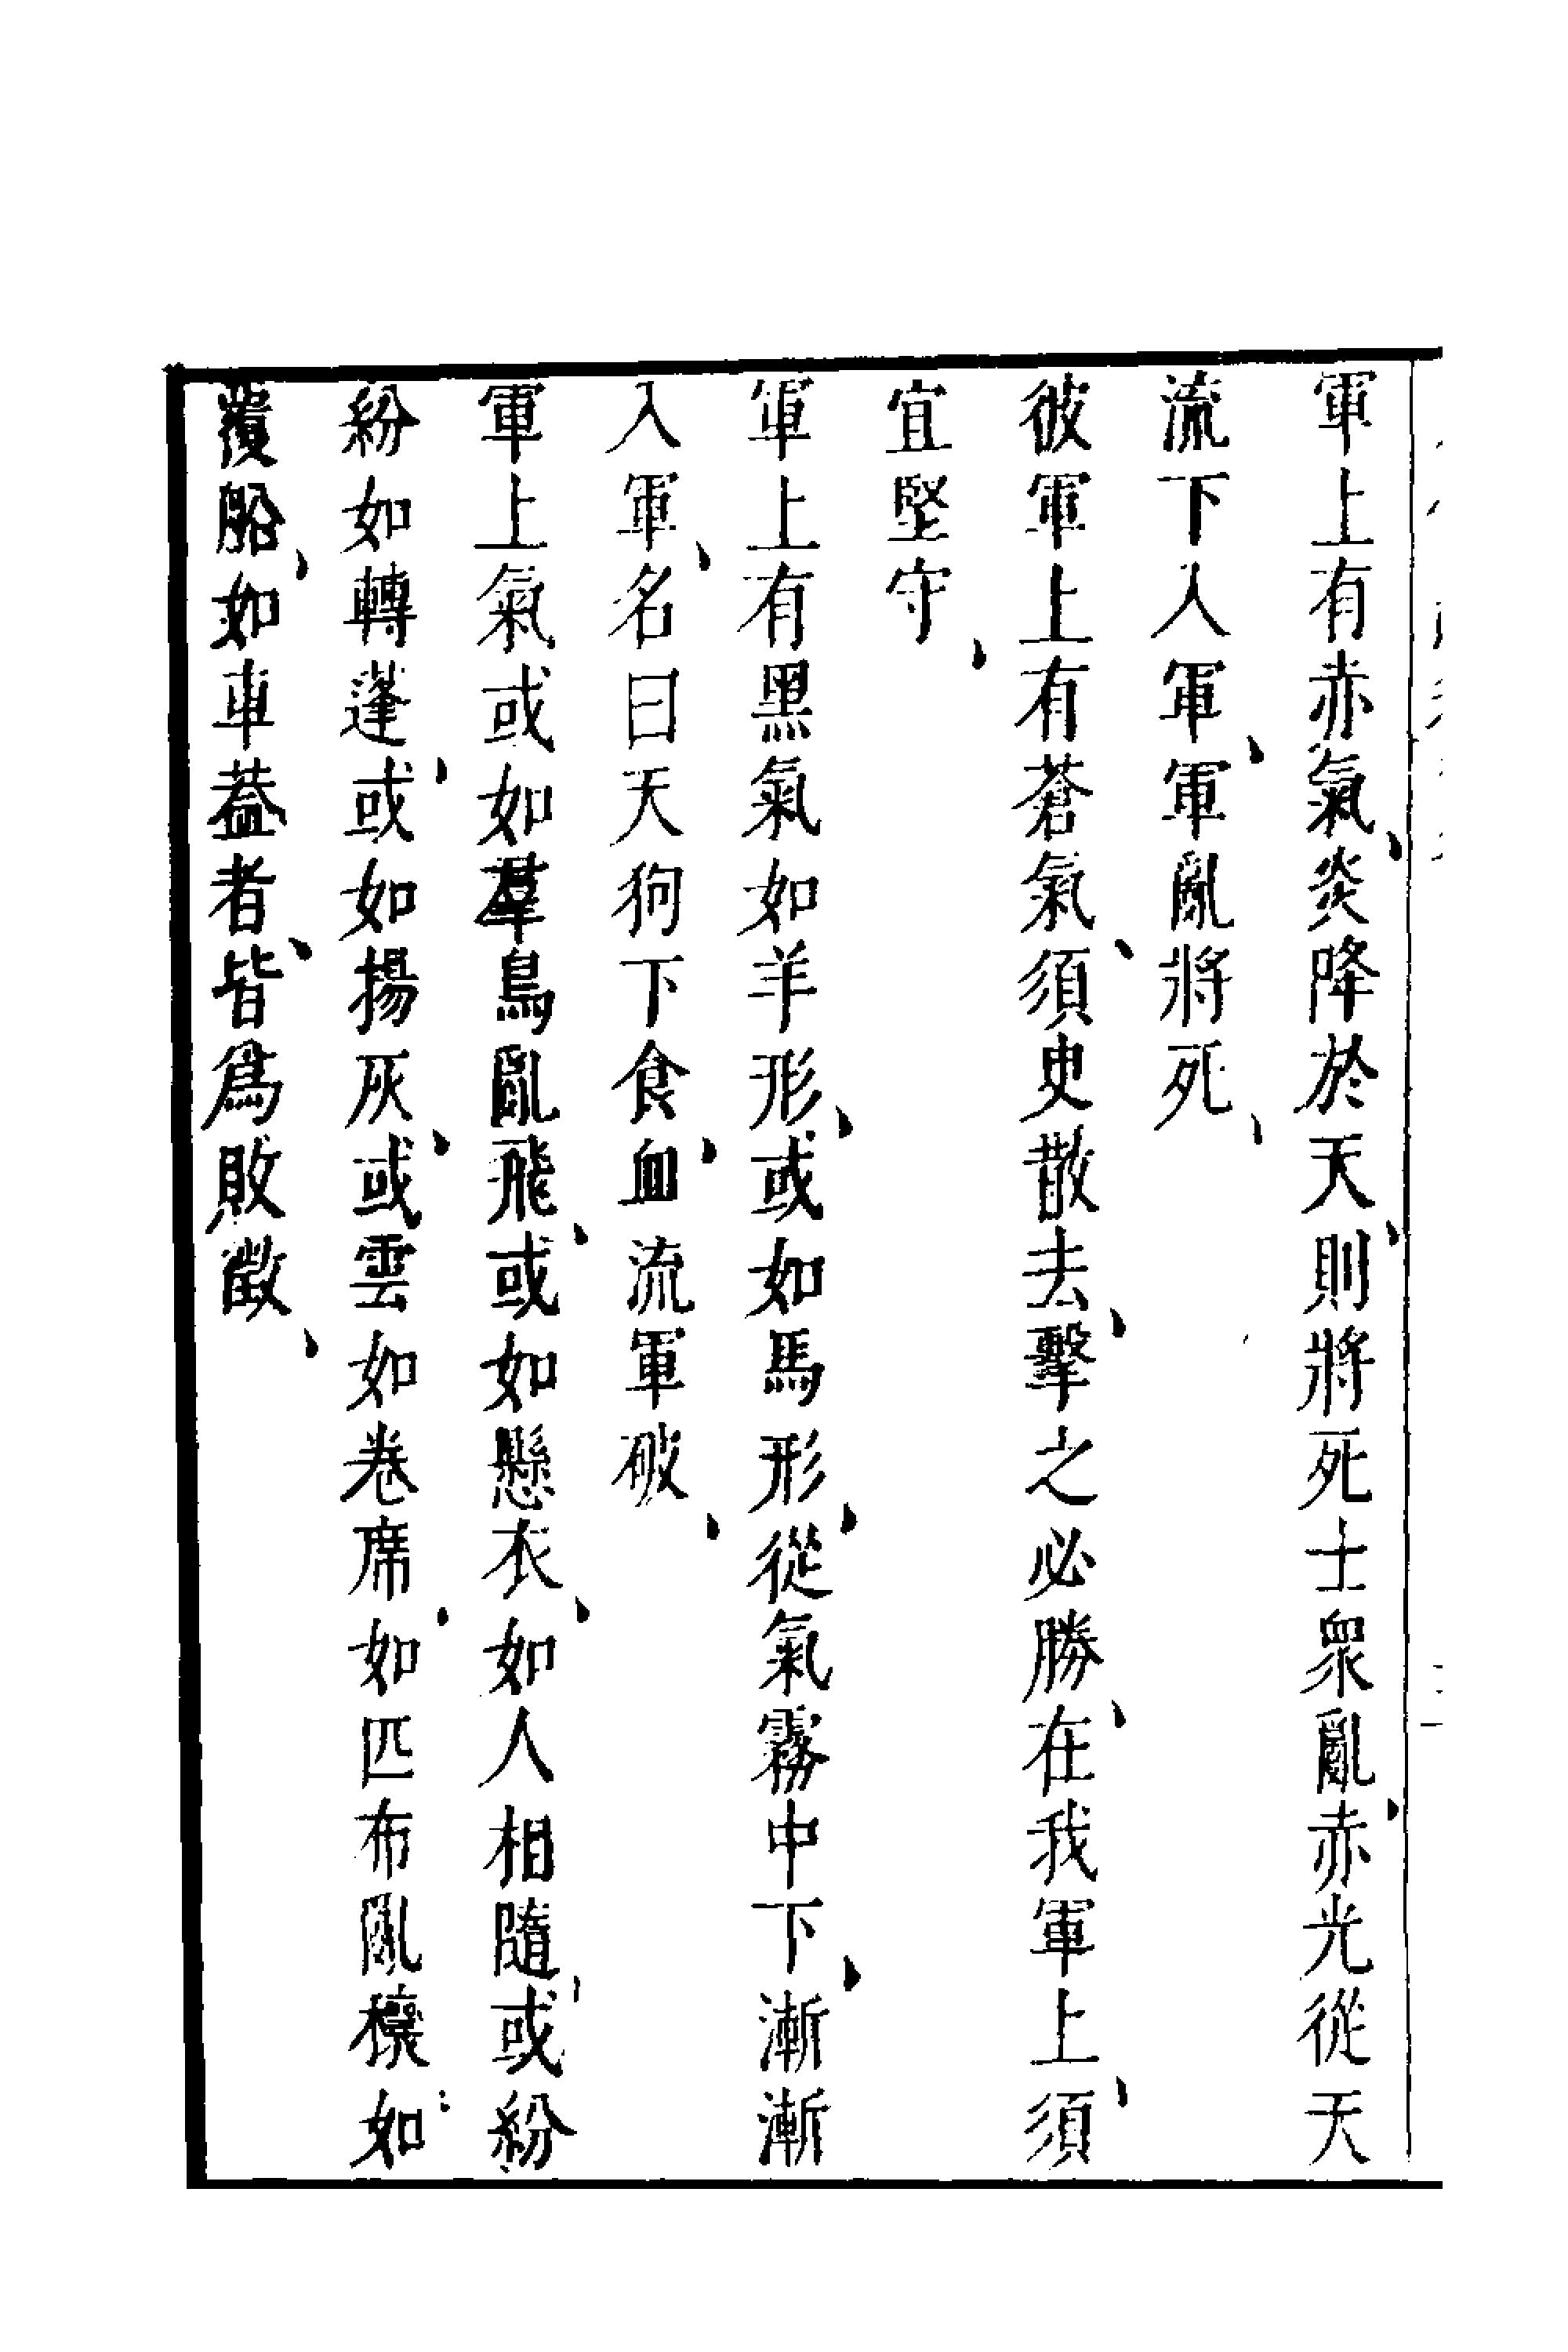 軍上有赤氣、炎降於天、則將死士衆亂、赤光從天
流下入軍、軍亂將死、
彼軍上有蒼氣、須史散去、擊之必勝、在我軍上、須
宜堅守、
軍上有黑氣如羊形、或如馬形、從氣霧中下、漸漸
入軍、名曰天狗下食血、流軍破、
軍上氣或如羣鳥亂飛、或如懸衣、如人相隨、或紛
紛如轉蓬、或如揚灰、或雲如卷席、如匹布亂穰、如
覆船、如車葢者、皆爲敗徵、